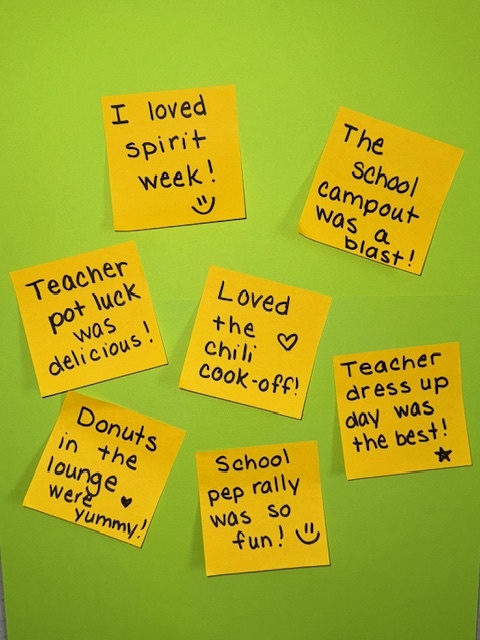 I loved
spirit
week!
The
school
campout
was a
blast!
Teacher
pot luck
was
delicious!
Loved
the
chili
cook-off!
Teacher
dress up
day was
the best!
Donuts
in the
lounge
were
yummy!
School
pep rally
was so
fun!